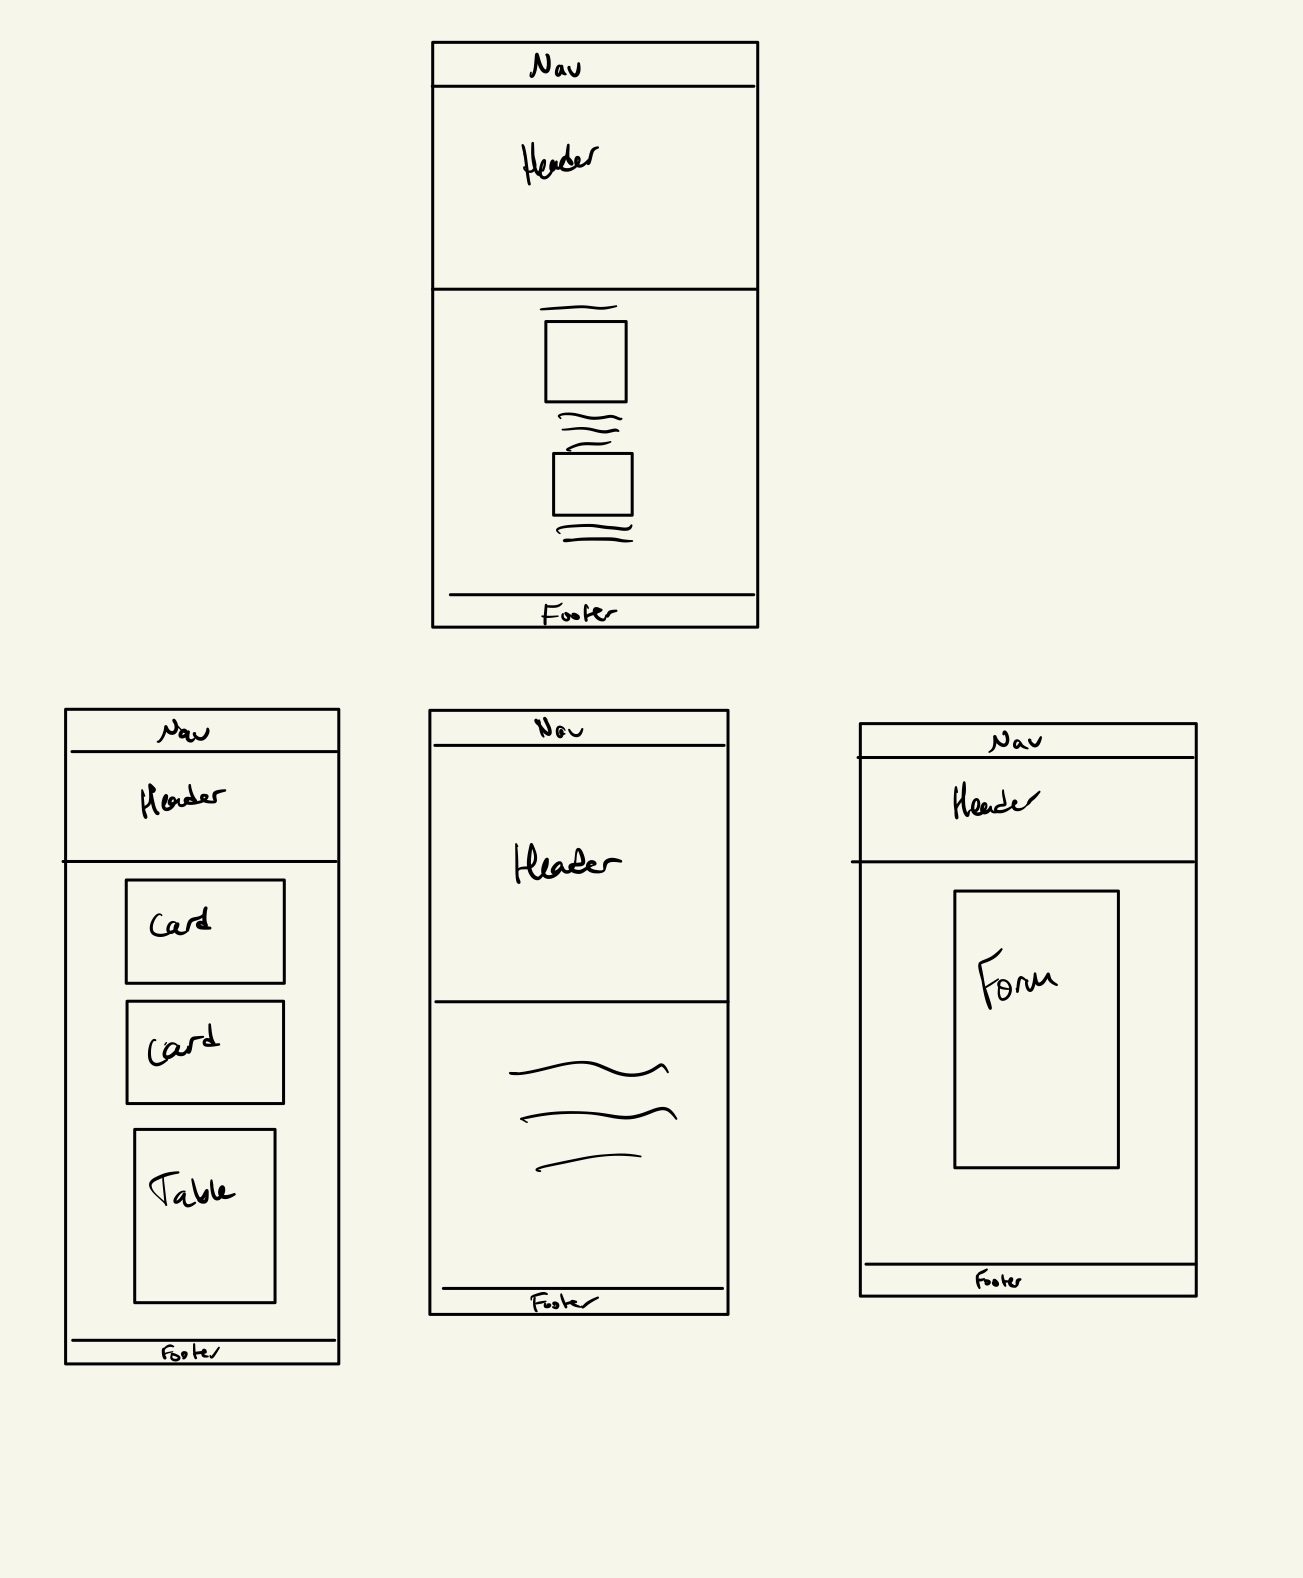 Nav
Header
Footer
Nav
Header
Card
Card
Table
Footer
Nav
Header
Footer
Nav
Header
Form
Footer